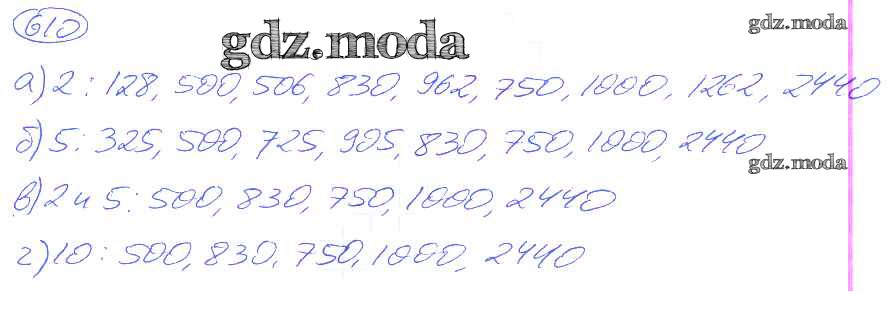 610
gdz.moda
gdz.moda
а) 2 : 128, 500, 506, 830, 962, 750, 1000, 1262, 2440
б) 5 : 325, 500, 725, 905, 830, 750, 1000, 2440
gdz.moda
в) 2 и 5 : 500, 830, 750, 1000, 2440
г) 10 : 500, 830, 750, 1000, 2440